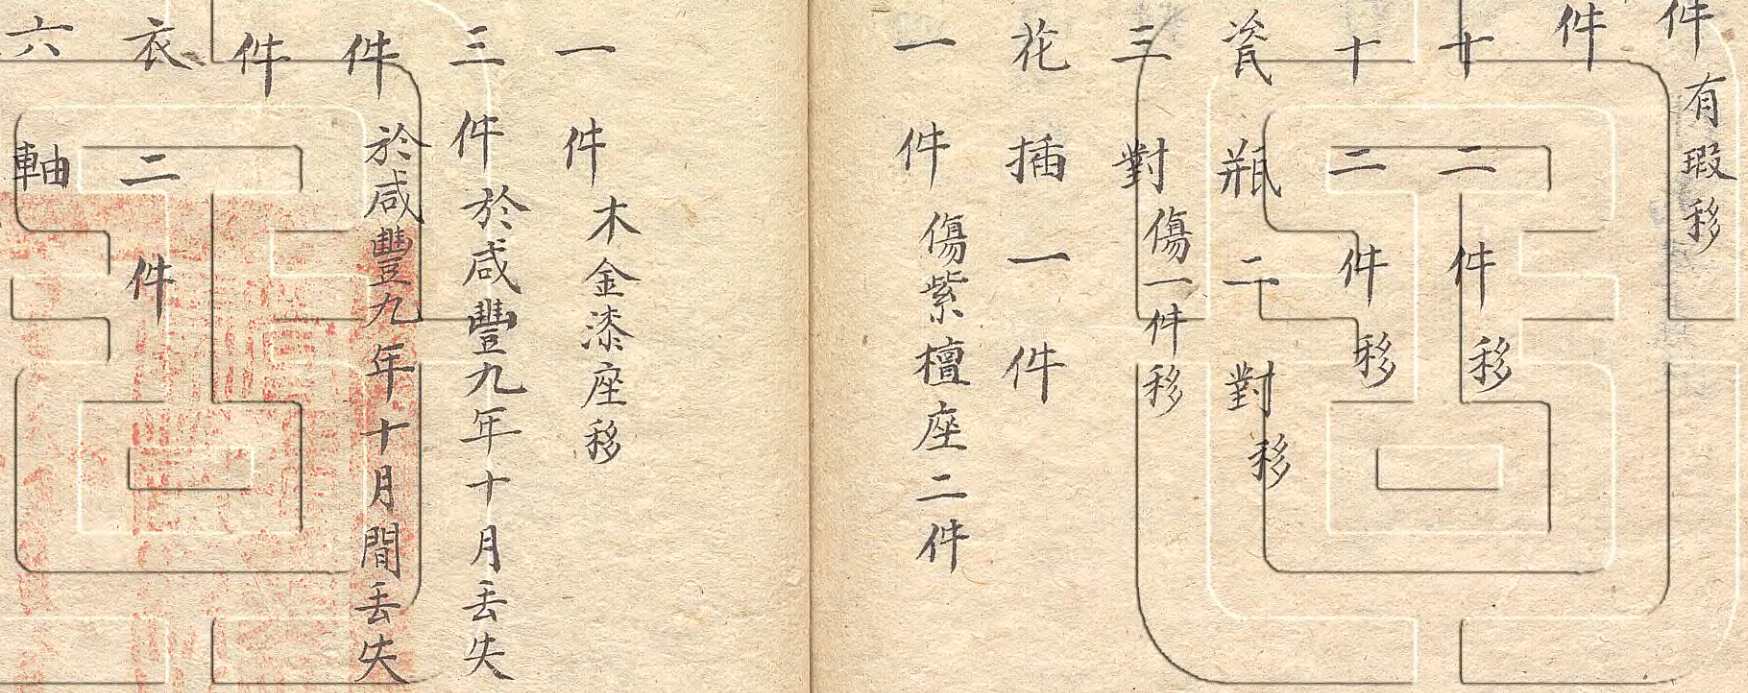 件有瑕移
件
十二件移
十二件移
瓷瓶二對移
三對傷一件移
花插一件
一件傷紫檀座二件
一件木金漆座移
三件於咸豐九年十月丟失
件於咸豐九年十月間丟失
件
衣二件
六軸